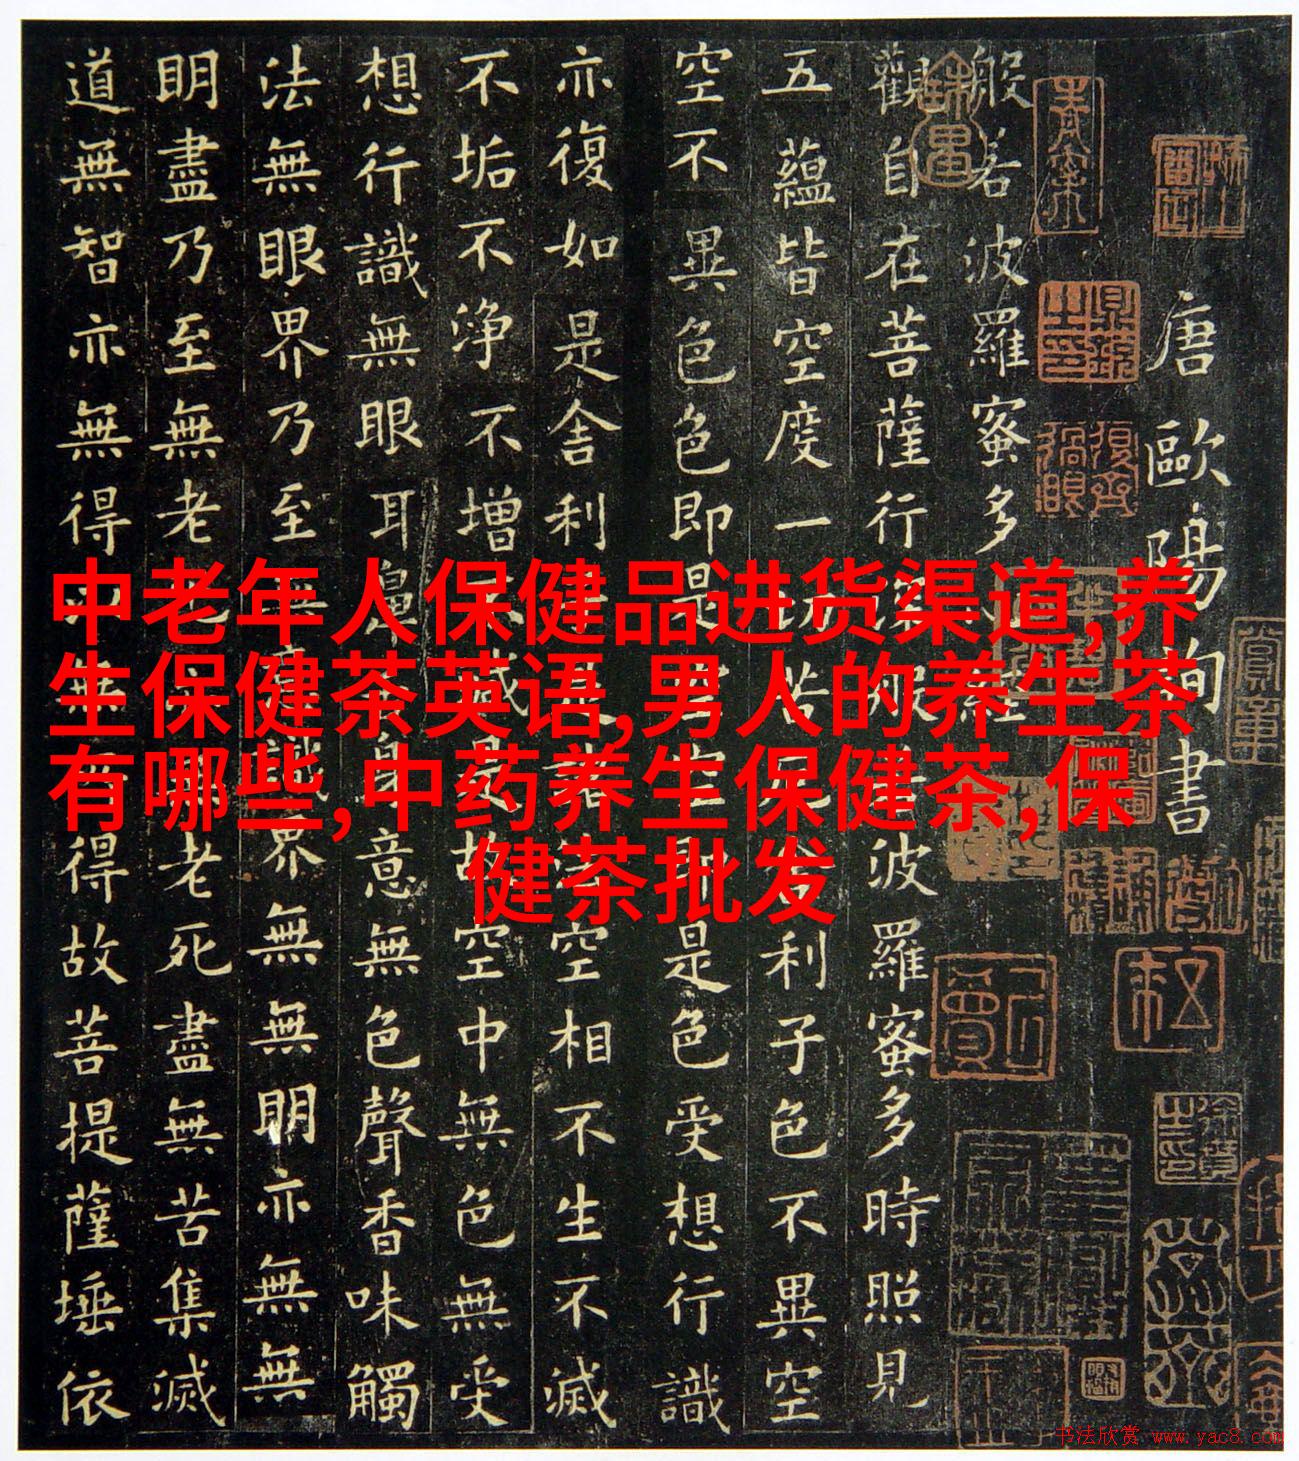 唐歐陽詢書
般若波羅蜜多心經
觀自在菩薩行深般若波羅蜜多時照見
五蘊皆空度一切苦厄舍利子色不異空
空不異色色即是空空即是色受想行識
亦復如是舍利子是諸法空相不生不滅
不垢不淨不增不減是故空中無色無受
想行識無眼耳鼻舌身意無色聲香味觸
法無眼界乃至無意識界無無明亦無無
明盡乃至無老死亦無老死盡無苦集滅
道無智亦無得以無所得故菩提薩埵依
中老年人保健品进货渠道,养
生保健茶英语,男人的养生茶
有哪些,中药养生保健茶,保
健茶批发
书法欣赏 www.yac8.com